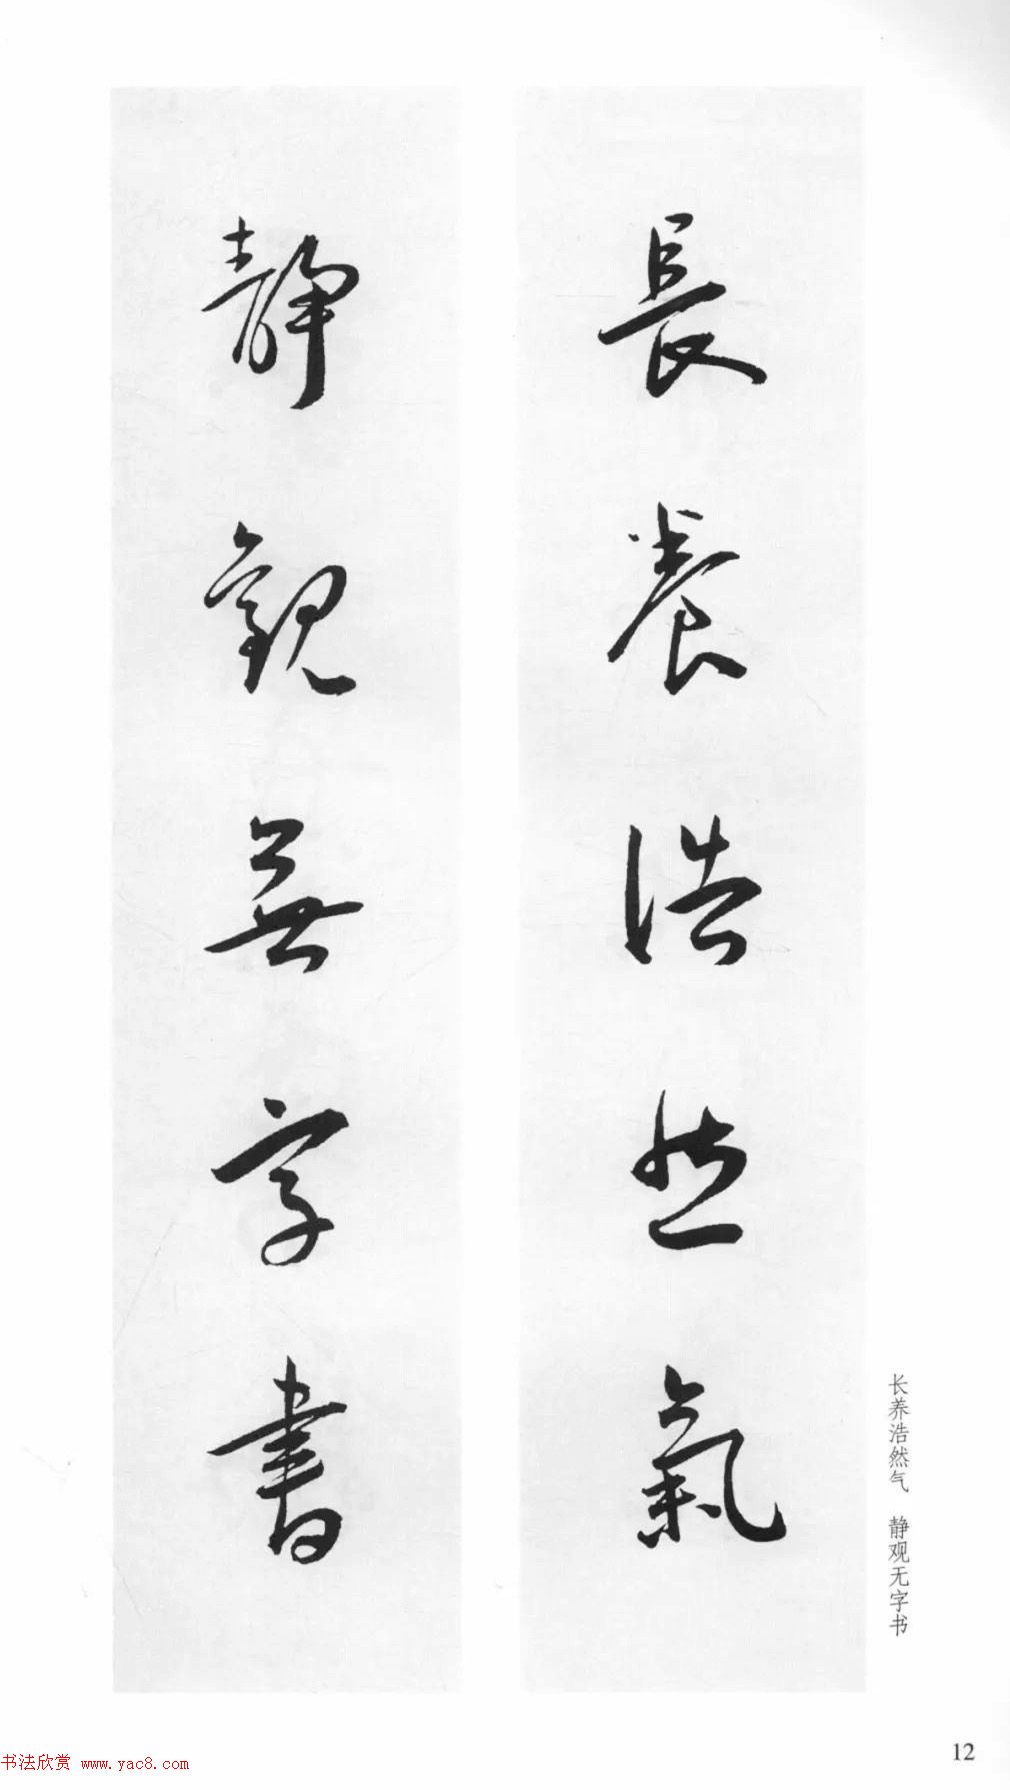 長養浩然氣
靜觀無字書
长养浩然气　静观无字书
12
书法欣赏 www.yac8.com